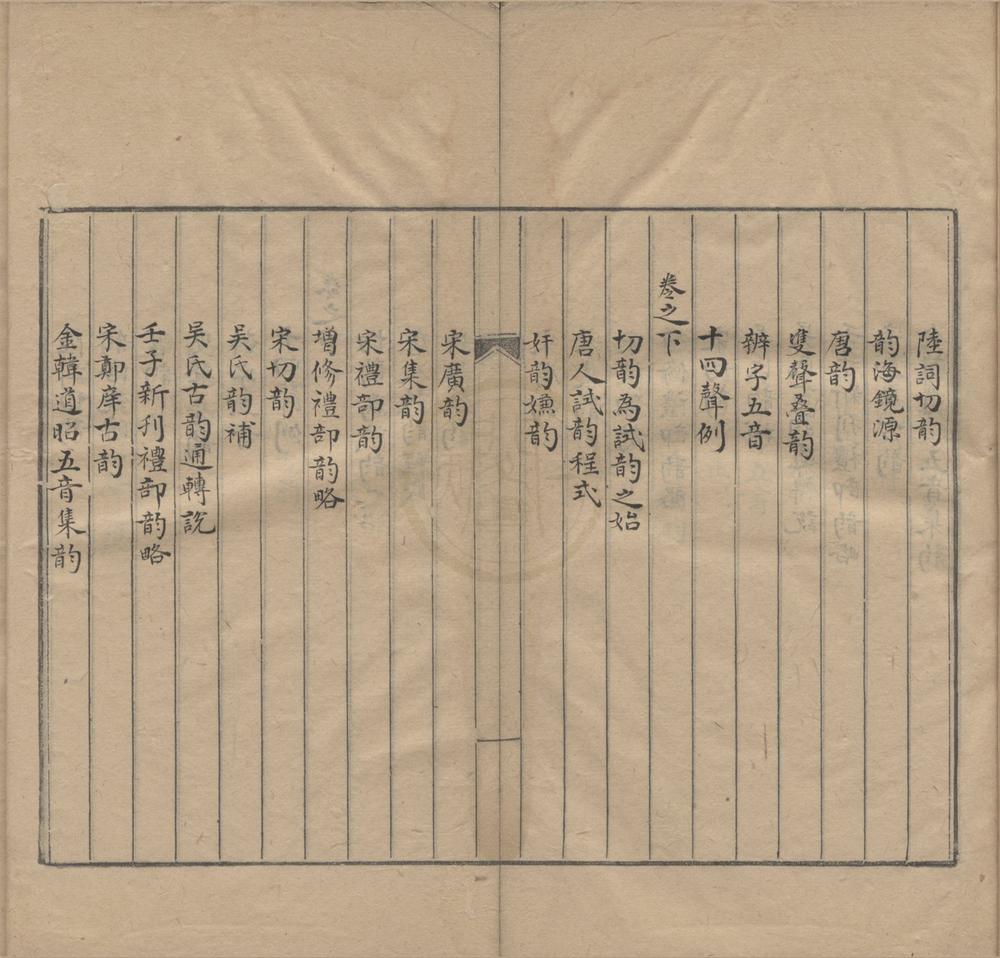 陸詞切韵
韵海鏡源
唐韵
雙聲叠韵
辨字五音
十四聲例
卷之下
切韵為試韵之始
唐人試韵程式
奸韵嫌韵
宋廣韵
宋集韵
宋禮部韵
增修禮部韵略
宋切韵
吳氏韵補
吳氏古韵通轉説
壬子新刋禮部韵略
宋鄭庠古韵
金韓道昭五音集韵